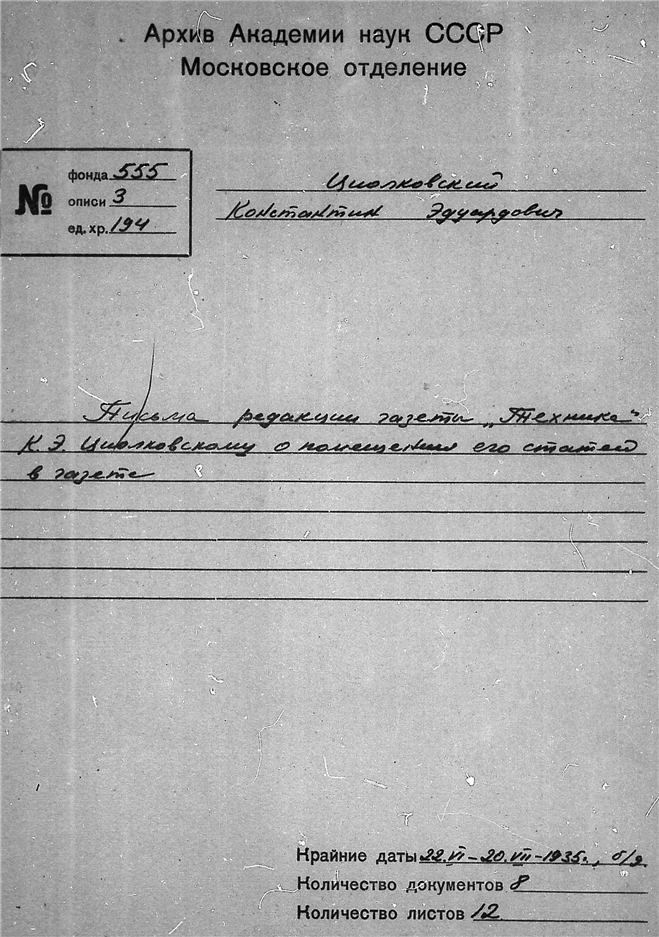 Архив Академии наук СССР
Московское отделение
№
фонда 555
описи 3
ед. хр. 194
Циолковский
Константин Эдуардович
Письма редакции газеты „Техника“
К.Э. Циолковскому о помещении его статей
в газете
Крайние даты 22.VI–20.VII–1935г., б/д
Количество документов 8
Количество листов 12